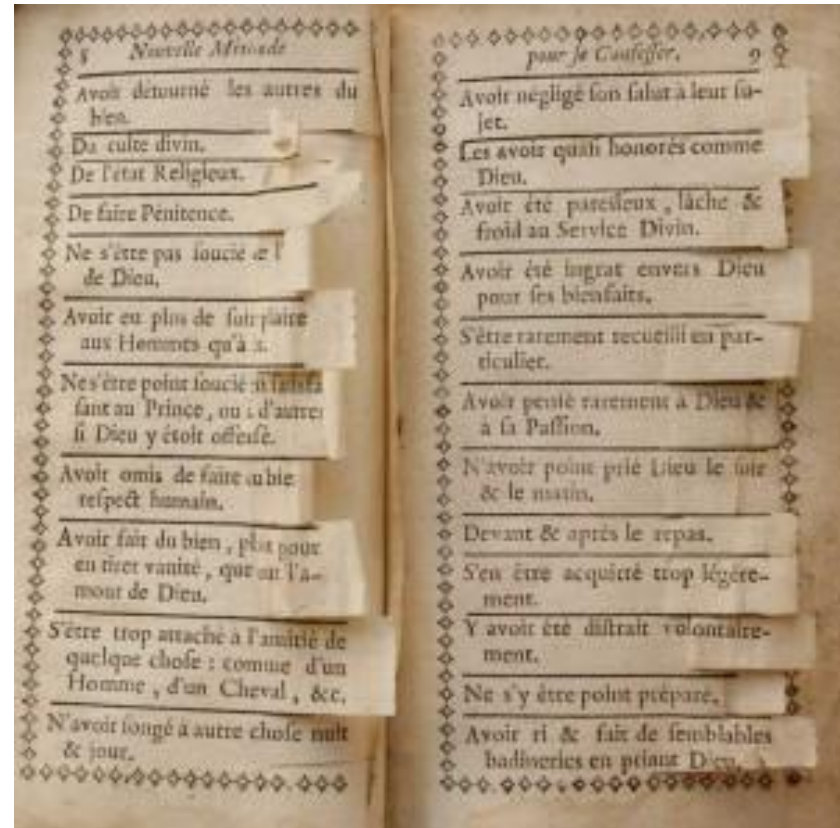 8 Nouvelle Méthode
Avoir détourné les autres du
bien.
Du culte divin.
De l'état Religieux.
De faire Pénitence.
Ne s'être pas soucié
de Dieu.
Avoir eu plus de
aux Hommes qu'à
Ne s'être point soucié
sant au Prince, ou d'autres
si Dieu y étoit offensé.
Avoir omis de faire
respect humain.
Avoir fait du bien, plus pour
en tirer vanité, que l'a-
mour de Dieu.
S'être trop attaché à l'amitié de
quelque chose : comme d'un
Homme, d'un Cheval, &c.
N'avoir songé à autre chose nuit
& jour.
pour se Confesser. 9
Avoir négligé son salut à leur su-
jet.
Les avoir quasi honorés comme
Dieu.
Avoir été paresseux, lâche &
froid au Service Divin.
Avoir été ingrat envers Dieu
pour ses bienfaits.
S'être rarement recueilli en par-
ticulier.
Avoir pensé rarement à Dieu &
à sa Passion.
N'avoir point prié Dieu le soir
& le matin.
Devant & après le repas.
S'en être acquitté trop légére-
ment.
Y avoir été distrait volontaire-
ment.
Ne s'y être point préparé.
Avoir ri & fait de semblables
badineries en priant Dieu.